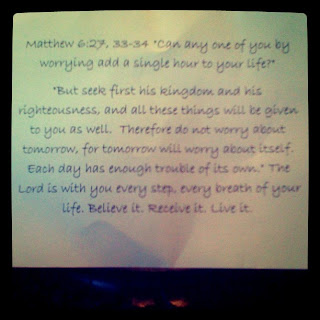 Matthew 6:27, 33-34 "Can any one of you by
worrying add a single hour to your life?"
"But seek first his kingdom and his
righteousness, and all these things will be given
to you as well. Therefore do not worry about
tomorrow, for tomorrow will worry about itself.
Each day has enough trouble of its own." The
Lord is with you every step, every breath of your
life. Believe it. Receive it. Live it.